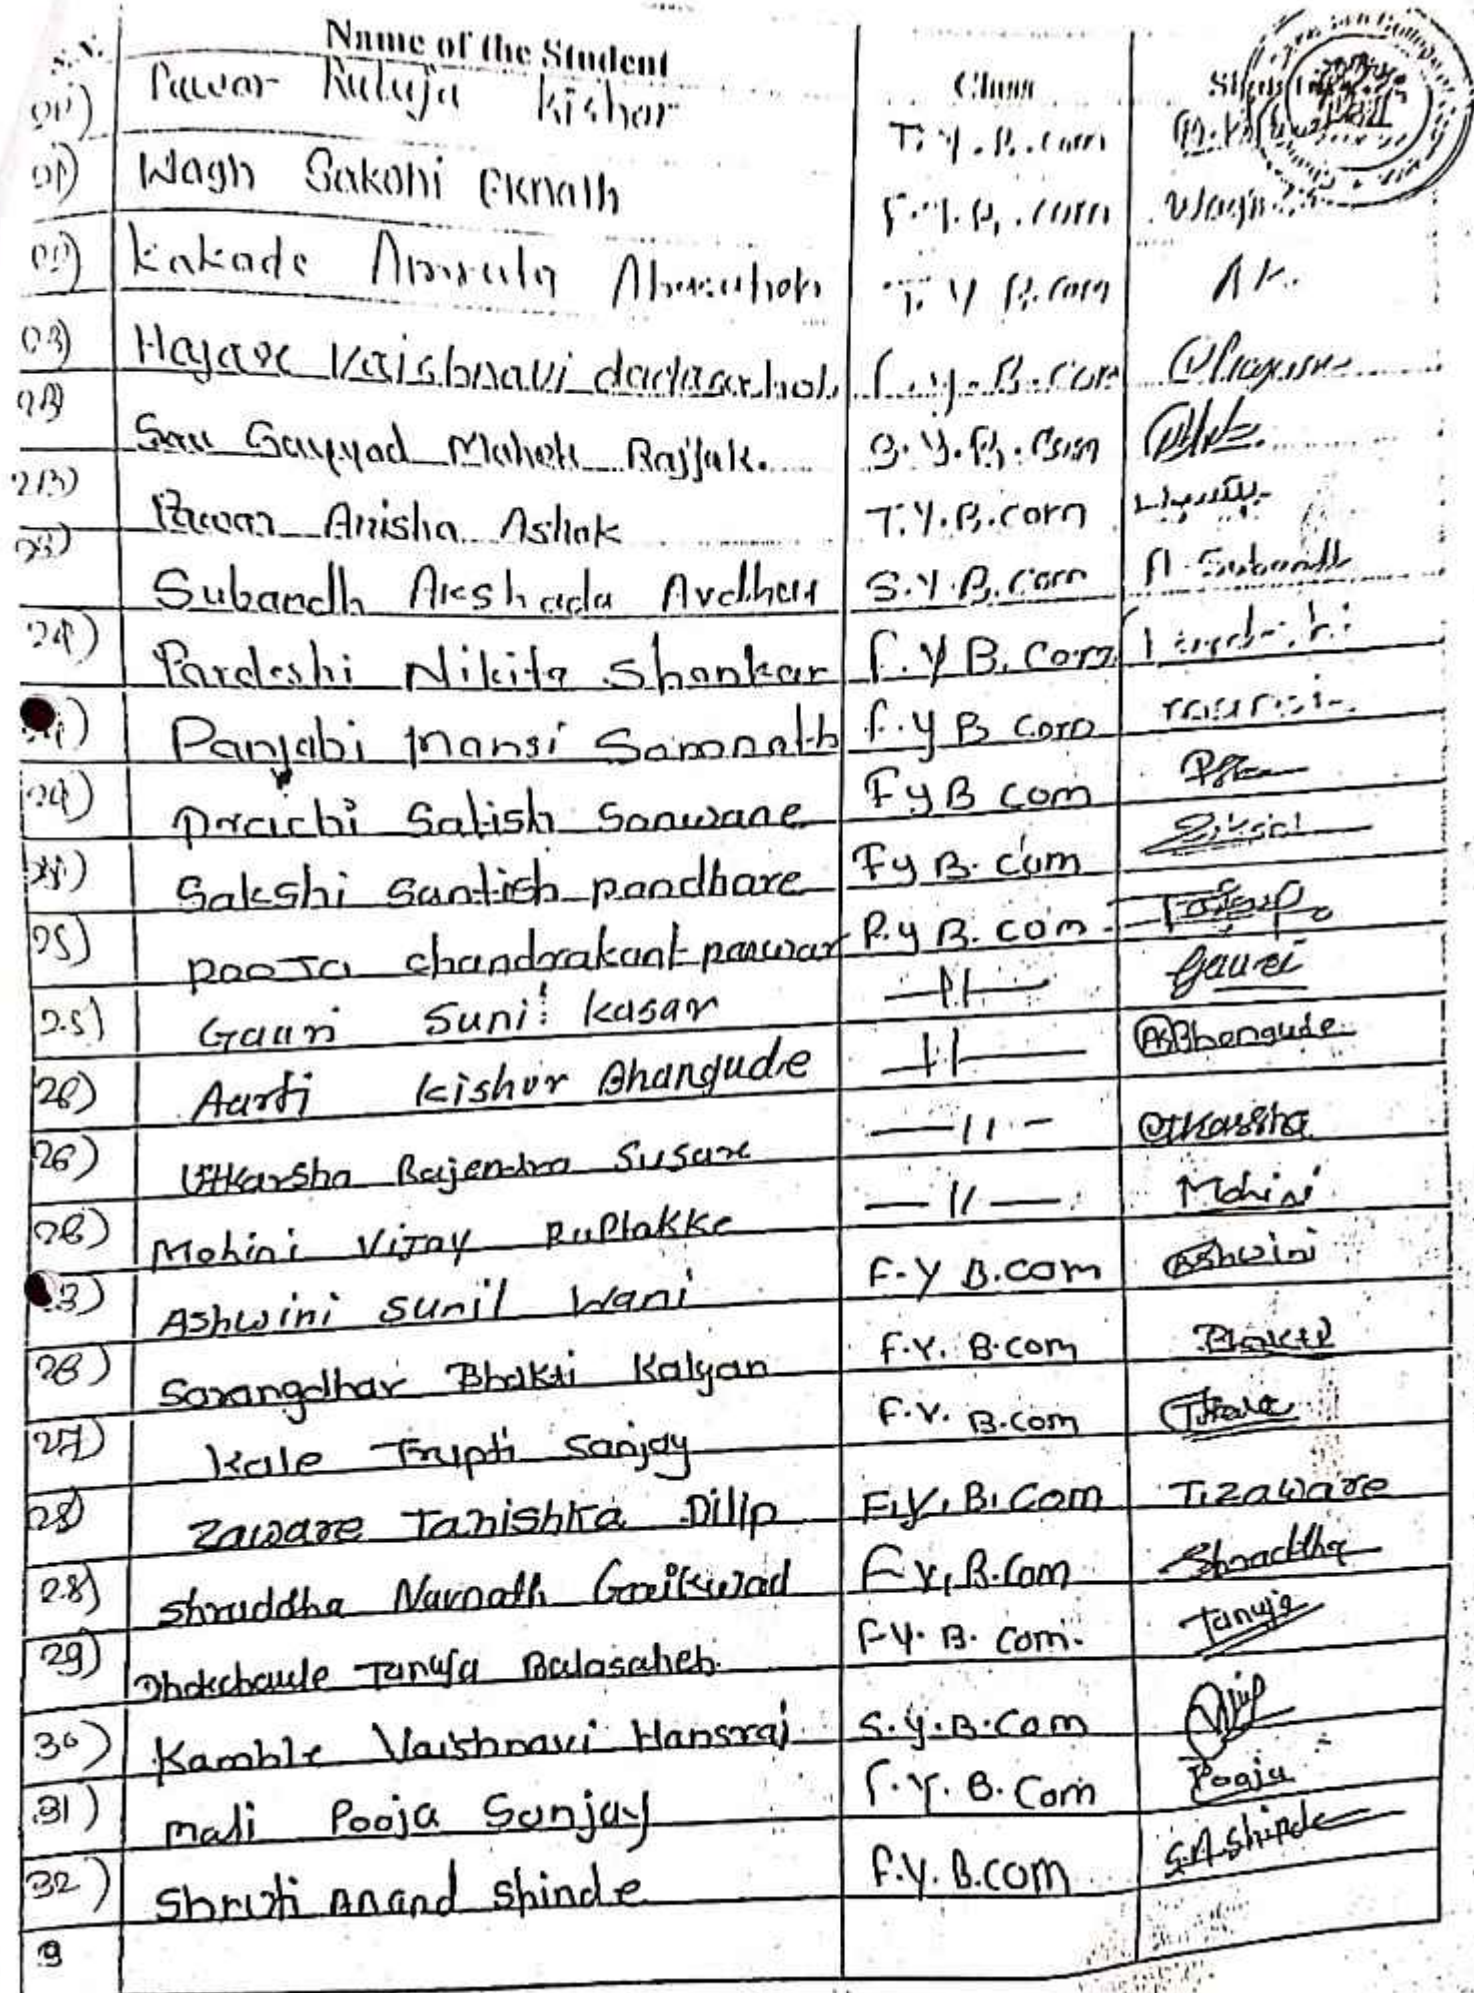 S.N. Name of the Student Class
Pawar Rutuja Kishor T.Y.B.com
Wagh Sakshi Eknath F.Y.B.com Wagh
Kakade Amruta T.Y B.com A K.
Hajare Vaishnavi dadasaheb F.y.B.com
Sayyad Mahek Rajjak. S.Y.B.com
Pawar Anisha Ashok T.Y.B.com
Subandh Akshada Avdhut S.Y.B.com A. Subandh
24) Pardeshi Nikita Shankar F.Y B.com
Panjabi mansi Somnath F.y B com mansi
24) Prachi Satish Sonwane Fy B com
Sakshi Santish pandhare Fy B. com
25) pooja chandrakant pawar F.y B. com
25) Gauri Sunil kasar —11— Gauri
26) Aarti kishor Bhangude —11— ABBhangude
26) Utkarsha Rajendra Susare —11— Utkarsha
26) Mohini Vijay —11— Mohini
Ashwini Sunil Wani F.Y B.com Ashwini
26) Sarangdhar Bhakti Kalyan F.Y. B.com Bhakti
27) Kale Trupti Sanjay F.Y. B.com Tkale
28) Zaware Tanishka Dilip F.Y.B.Com T.Zaware
28) Shraddha Navnath Gaikwad F.Y.B.Com Shraddha
29) Dhokchaule Tanuja Balasaheb F.Y.B. Com. Tanuja
30) Kamble Vaishnavi Hansraj S.Y.B.Com
31) Mali Pooja Sanjay F.Y.B.Com Pooja
32) Shruti Anand Shinde F.Y.B.com S.A.Shinde